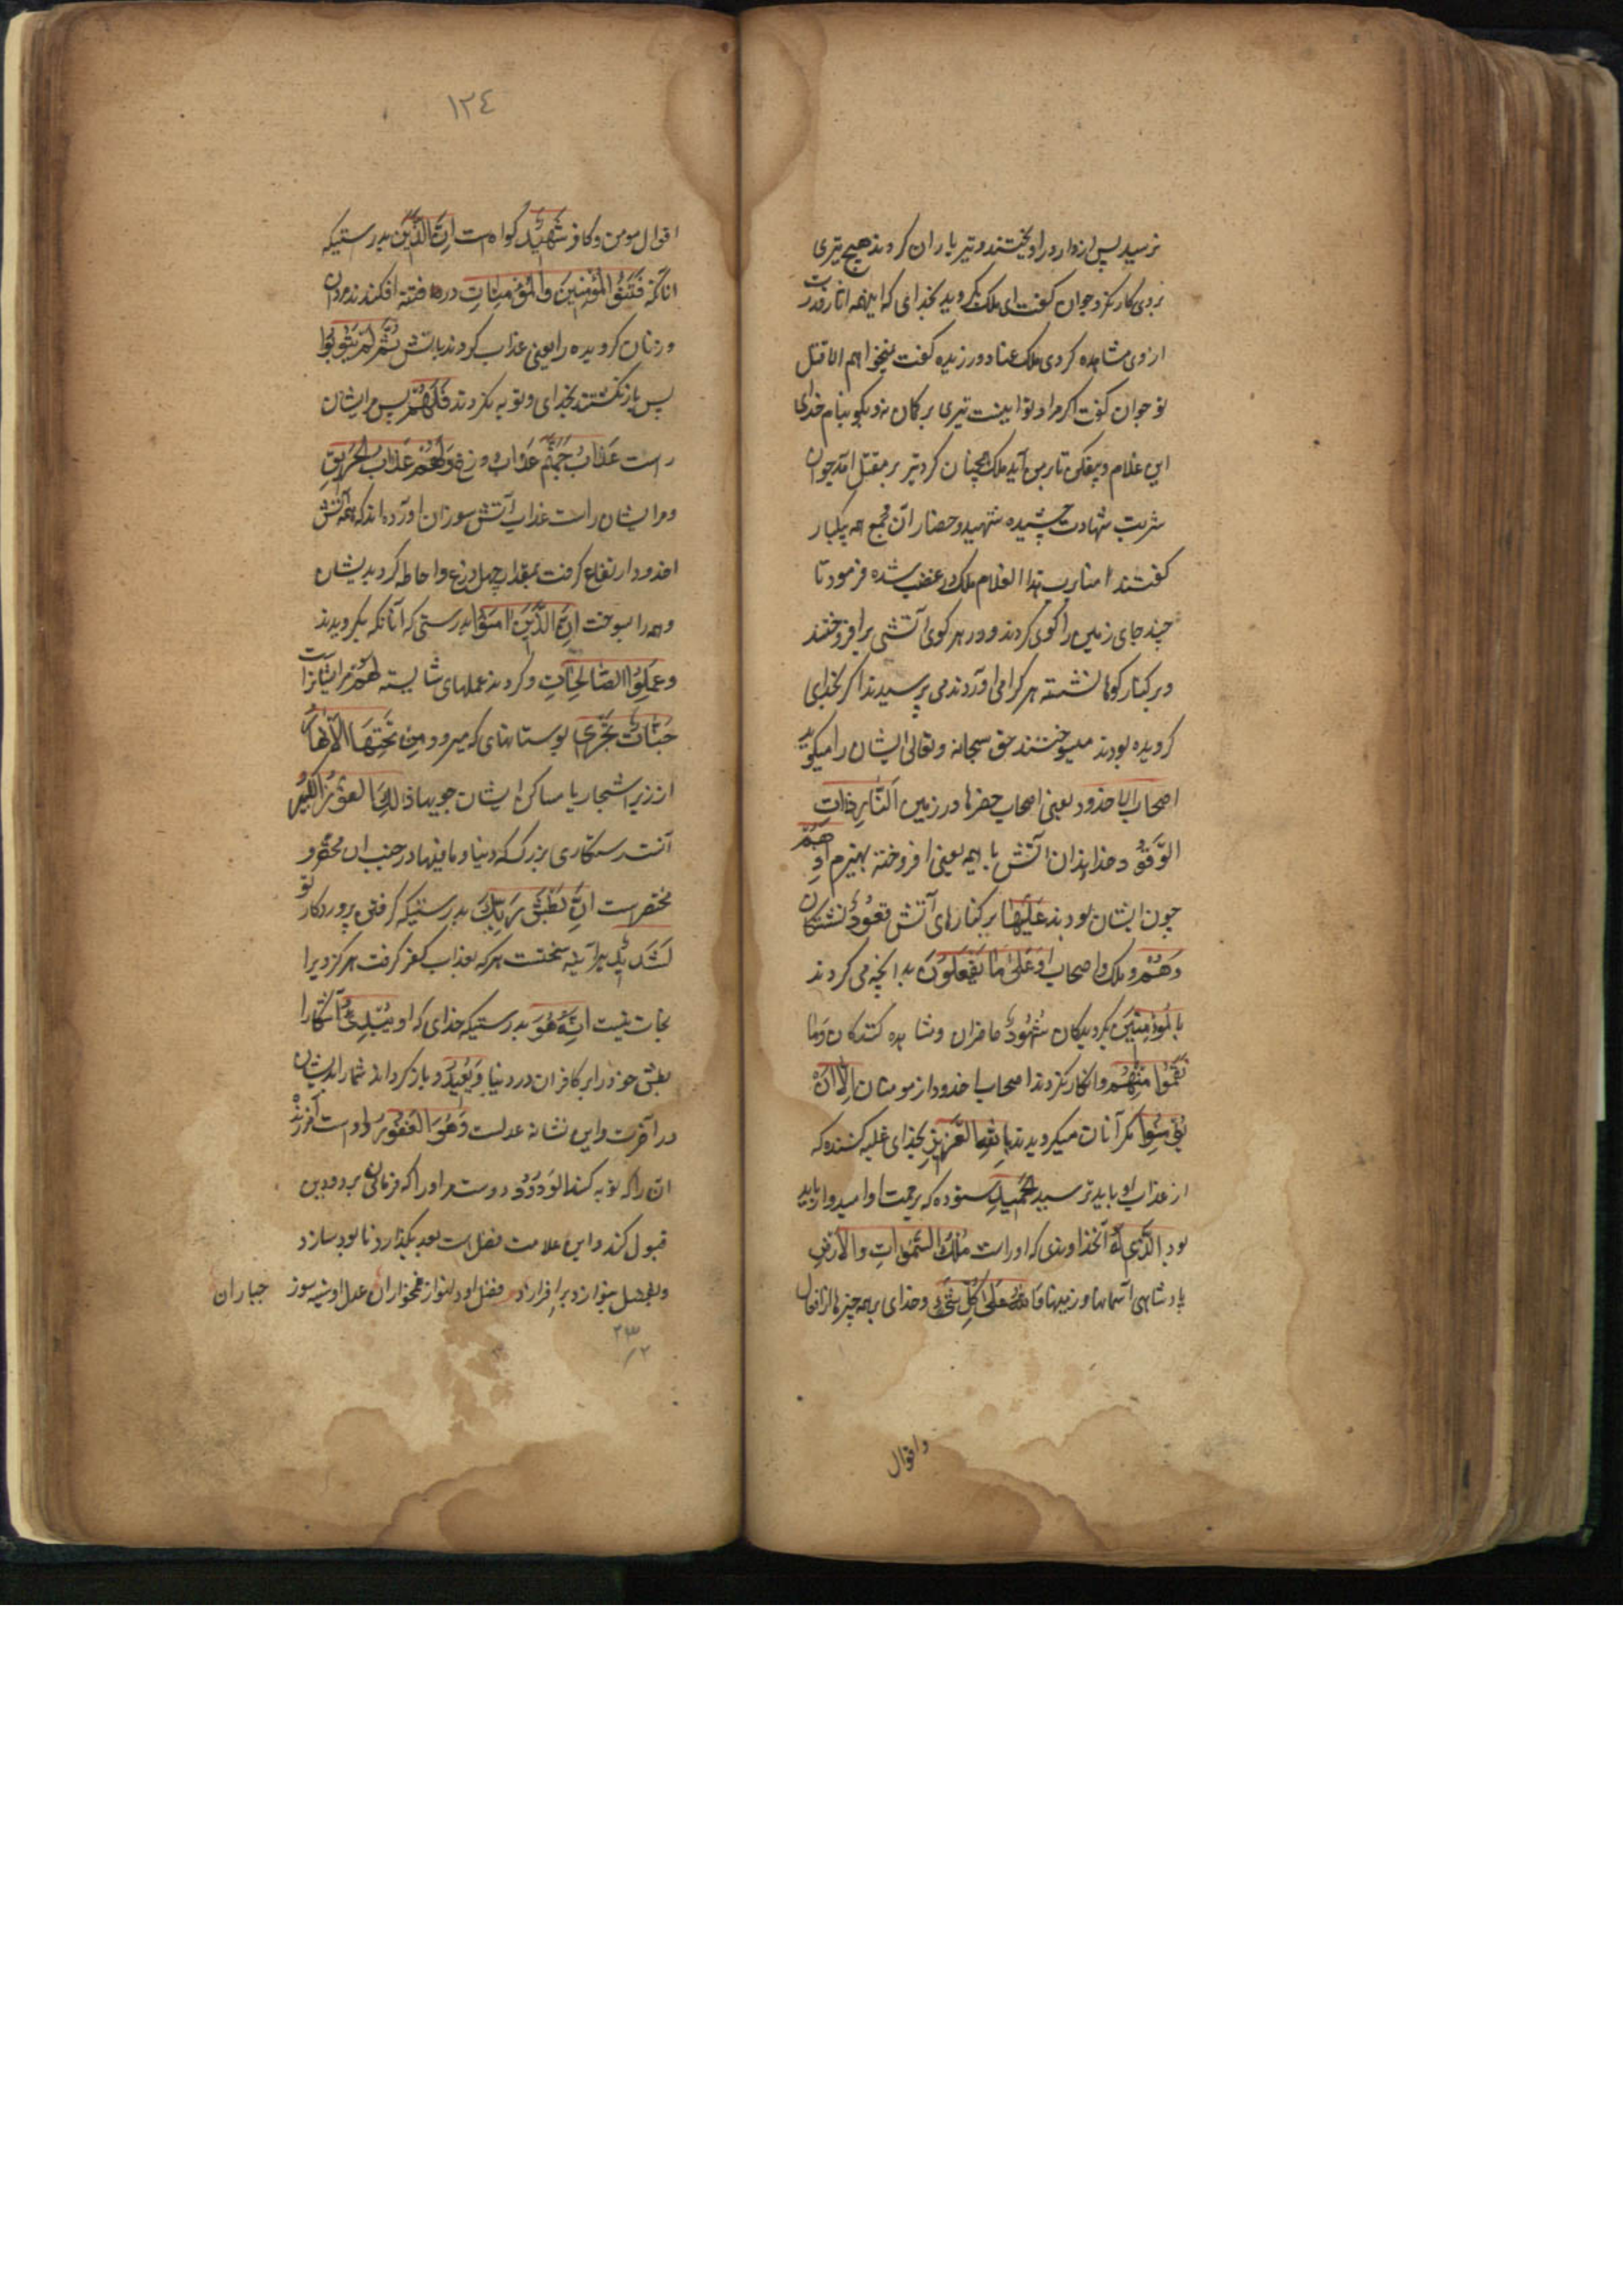 نرسید پس از دار در آویختند و تیر باران کردند هیچ تیری
بروی کار نکرد جوان گفت ای ملک بگرو بدین خدائی که اینهمه اثار قدرت
ازوی مشاهده کردی ملک عناد ورزیده گفت نمیخواهم الا قتل
تو جوان گفت اگر مراد تو اینست تیری بر کمان نه و بگو بنام خدای
این غلام و بیفکن تا بر من آید ملک همچنان کرد تیر بر مقتل آمد جوان
شربت شهادت چشیده شهید و حضار آن مجمع همه یکبار
گفتند امنا برب هذا الغلام ملک در غضب شده فرمود تا
چند جای زمین را کوی کردند و در هر کوی آتشی برافروختند
و بر کنار کوها نشسته هر کرا می آوردند می پرسیدند اگر بخدای
گرویده بودند میسوختند حق سبحانه وتعالی ایشان را میگوید
اصحاب الاخدود یعنی اصحاب حفرها در زمین النَّارِ ذَاتِ
الوَقُودِ خداوندان آتش با هیمه یعنی افروخته بهیزم اِذ هُمْ
چون ایشان بودند عَلَيْهَا بر کنارهای آتش قُعُودٌ نشستگان
وَهُمْ و ملک و اصحاب او عَلَىٰ مَا يَفْعَلُونَ بدانچه می کردند
بِالْمُؤْمِنِينَ بگرویدگان شُهُودٌ حاضران و مشاهده کنندگان وَمَا
نَقَمُوا مِنْهُمْ وانکار نکردند اصحاب اخدود از مومنان اِلَّا اَنْ
يُؤْمِنُوا مگر آنان میگرویدند بِاللَّهِ الْعَزِيزِ بخدای غلبه کننده که
از عذاب او باید ترسید الْحَمِيدِ ستوده که برحمت او امیدوار باید
بود الَّذِي لَهُ آنخداوندی که اوراست مُلْكُ السَّمٰوَاتِ وَالْاَرْضِ
پادشاهی آسمانها و زمینها وَاللَّهُ عَلَىٰ كُلِّ شَيْءٍ وخدای بر همه چیزها از افعال
واقوال
١٢٤
اقوال مومن و کافر شَهِيدٌ گواه است اِنَّ الَّذِينَ بدرستیکه
انانکه فَتَنُوا الْمُؤْمِنِينَ وَالْمُؤْمِنَاتِ در فتنه افکندند مردان
و زنان گرویده را یعنی عذاب کردند باتش ثُمَّ لَمْ يَتُوبُوا
پس باز نگشتند بخدای و توبه نکردند فَلَهُمْ پس مر ایشان
راست عَذَابُ جَهَنَّمَ عذاب دوزخ وَلَهُمْ عَذَابُ الْحَرِيقِ
و مر ایشان راست عذاب آتش سوزان آورده اند که همه آتش
اخدود ارتفاع گرفت بمقدار چهل ذرع و احاطه کرد بدیشان
و همه را بسوخت اِنَّ الَّذِينَ اٰمَنُوا بدرستی که آنانکه بگرویدند
وَعَمِلُوا الصَّالِحَاتِ وکردند عملهای شایسته لَهُمْ مر ایشانراست
جَنَّاتٌ تَجْرِي بوستانهای که میرود مِنْ تَحْتِهَا الْاَنْهَارُ
از زیر اشجار یا مساکن ایشان جویها ذٰلِكَ الْفَوْزُ الْكَبِيرُ
آنست رستگاری بزرگ که دنیا و مافیها در جنب ان محقر و
مختصرست اِنَّ بَطْشَ رَبِّكَ بدرستیکه گرفتن پروردگار تو
لَشَدِيدٌ هرآینه سختست هر که بعذاب کفر گرفت هرگز ویرا
نجات نیست اِنَّهُ هُوَ بدرستیکه خدای که او يُبْدِئُ آشکارا
بطش خود را بر کافران در دنیا وَيُعِيدُ و باز گرداند شمار ایشان
در آخرت و این نشانه عدلست وَهُوَ الْغَفُورُ و اوست آمرزنده
انرا که توبه کند الْوَدُودُ دوست مر اورا که فرمان برد و دین
قبول کند و این علامت فضل است بعد بگذارد نابود سازد
و بفضل بنوازد برافرازد فضل او دلنواز غمخواران عدل او سینه سوز جباران